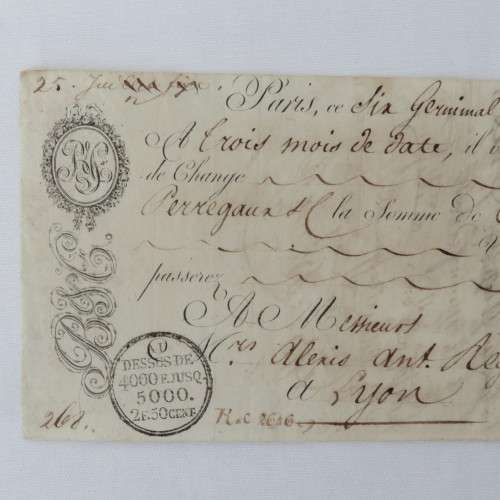 25. Jui
Paris, ce Six Germinal
A trois mois de date, il v
de Change
Perregaux & C la Somme de
passerez
A Messieurs
Mrs Alexis Ant. Reg
a Lyon
DESSES DE
4000 F. JUSQ.
5000.
2 F. 50 CENT.
268.
H.C 2646